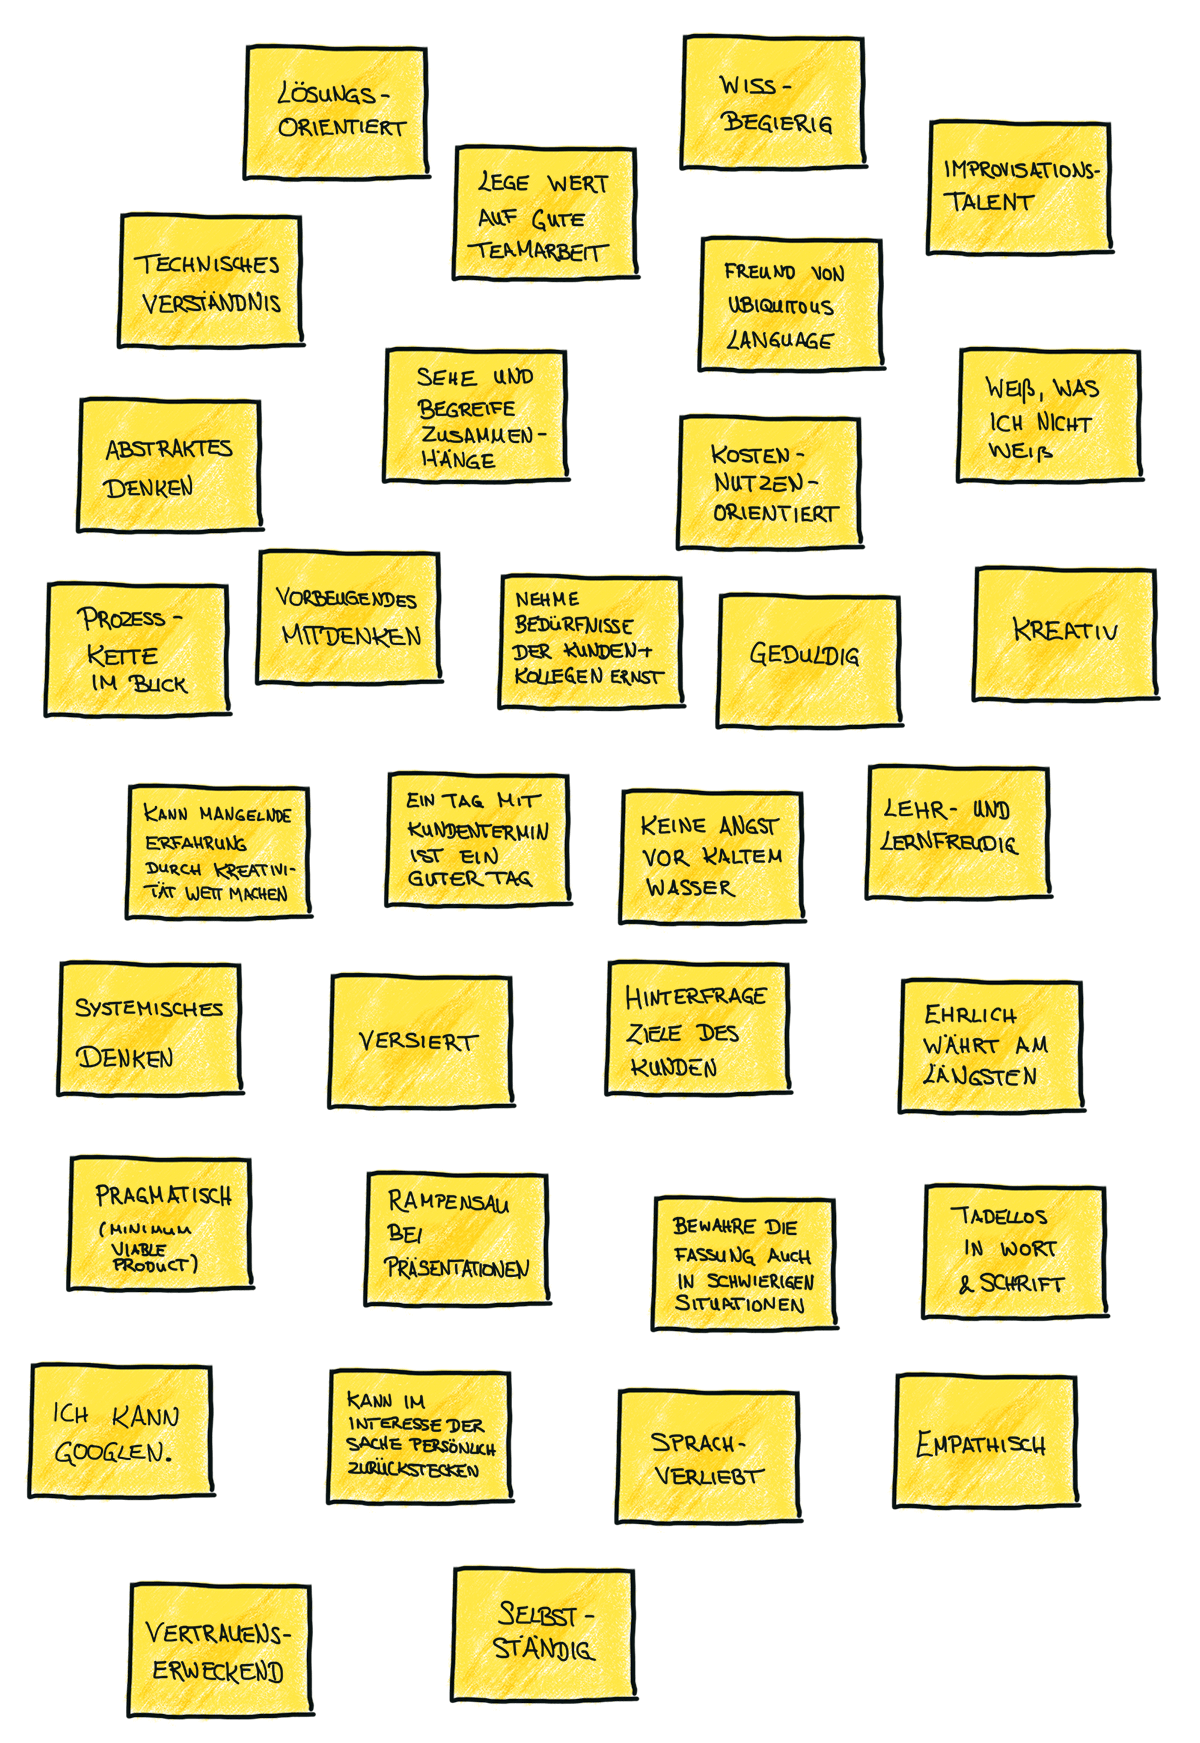 LÖSUNGS-
ORIENTIERT
WISS-
BEGIERIG
IMPROVISATIONS-
TALENT
LEGE WERT
AUF GUTE
TEAMARBEIT
TECHNISCHES
VERSTÄNDNIS
FREUND VON
UBIQUITOUS
LANGUAGE
SEHE UND
BEGREIFE
ZUSAMMEN-
HÄNGE
WEIß, WAS
ICH NICHT
WEIß
ABSTRAKTES
DENKEN
KOSTEN-
NUTZEN-
ORIENTIERT
PROZESS-
KETTE
IM BLICK
VORBEUGENDES
MITDENKEN
NEHME
BEDÜRFNISSE
DER KUNDEN+
KOLLEGEN ERNST
GEDULDIG
KREATIV
KANN MANGELNDE
ERFAHRUNG
DURCH KREATIVI-
TÄT WETT MACHEN
EIN TAG MIT
KUNDENTERMIN
IST EIN
GUTER TAG
KEINE ANGST
VOR KALTEM
WASSER
LEHR- UND
LERNFREUDIG
SYSTEMISCHES
DENKEN
VERSIERT
HINTERFRAGE
ZIELE DES
KUNDEN
EHRLICH
WÄHRT AM
LÄNGSTEN
PRAGMATISCH
(MINIMUM
VIABLE
PRODUCT)
RAMPENSAU
BEI
PRÄSENTATIONEN
BEWAHRE DIE
FASSUNG AUCH
IN SCHWIERIGEN
SITUATIONEN
TADELLOS
IN WORT
& SCHRIFT
ICH KANN
GOOGLEN.
KANN IM
INTERESSE DER
SACHE PERSÖNLICH
ZURÜCKSTECKEN
SPRACH-
VERLIEBT
EMPATHISCH
VERTRAUENS-
ERWECKEND
SELBST-
STÄNDIG